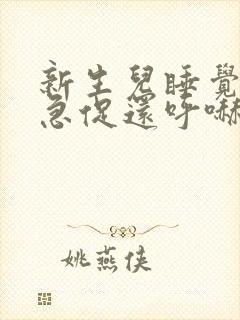 新生兒睡覺
急促還呼嚇
姚燕俠